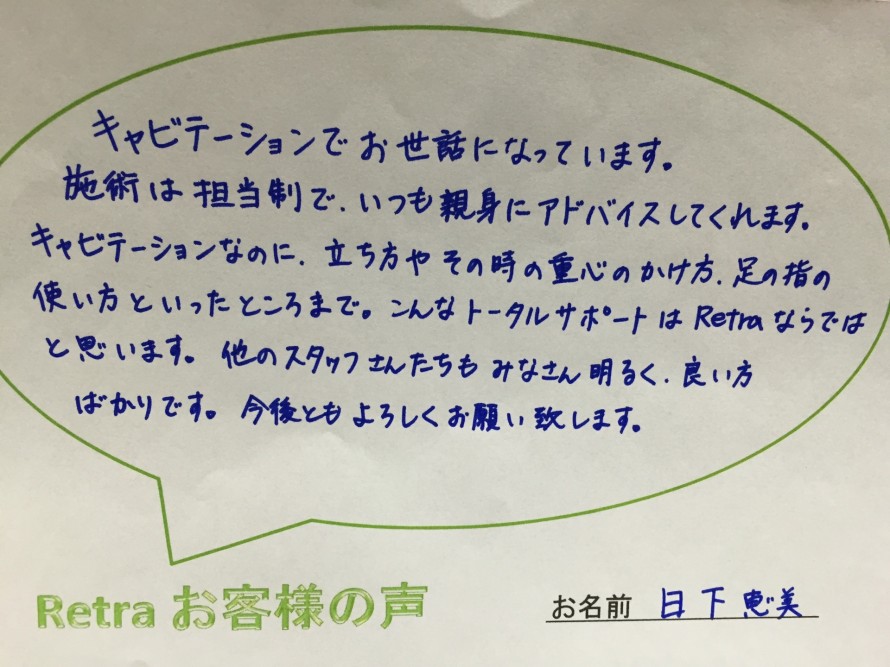 キャビテーションでお世話になっています。
施術は担当制で、いつも親身にアドバイスしてくれます。
キャビテーションなのに、立ち方やその時の重心のかけ方、足の指の
使い方といったところまで。こんなトータルサポートはRetraならでは
と思います。他のスタッフさんたちもみなさん明るく、良い方
ばかりです。今後ともよろしくお願い致します。
Retra お客様の声
お名前 日下恵美